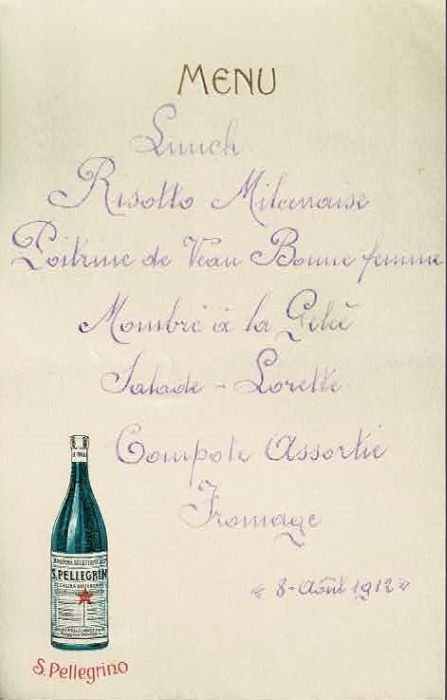 MENU
Lunch
Risotto Milanaise
Poitrine de Veau Bonne femme
à la Gelée
Salade - Lorette
Compote Assortie
Fromage
« 8 - Août 1912 »
S. PELLEGRINO
S. Pellegrino